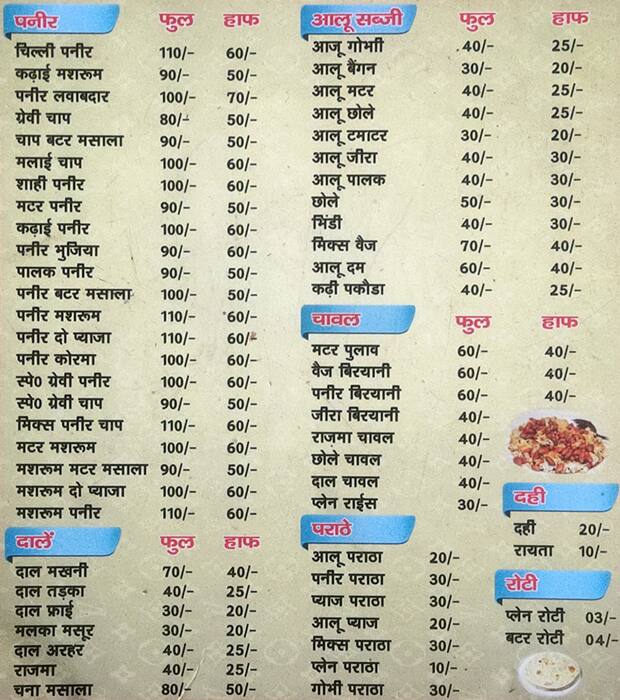 पनीर फुल हाफ
चिल्ली पनीर 110/- 60/-
कढ़ाई मशरूम 90/- 50/-
पनीर लवाबदार 100/- 70/-
ग्रेवी चाप 80/- 50/-
चाप बटर मसाला 90/- 50/-
मलाई चाप 100/- 60/-
शाही पनीर 100/- 60/-
मटर पनीर 90/- 50/-
कढ़ाई पनीर 100/- 60/-
पनीर भुजिया 90/- 60/-
पालक पनीर 90/- 50/-
पनीर बटर मसाला 100/- 50/-
पनीर मशरूम 110/- 60/-
पनीर दो प्याजा 110/- 60/-
पनीर कोरमा 100/- 60/-
स्पे0 ग्रेवी पनीर 100/- 60/-
स्पे0 ग्रेवी चाप 90/- 50/-
मिक्स पनीर चाप 110/- 60/-
मटर मशरूम 100/- 60/-
मशरूम मटर मसाला 90/- 50/-
मशरूम दो प्याजा 100/- 60/-
मशरूम पनीर 110/- 60/-
दालें फुल हाफ
दाल मखनी 70/- 40/-
दाल तड़का 40/- 25/-
दाल फ्राई 30/- 20/-
मलका मसूर 30/- 20/-
दाल अरहर 40/- 25/-
राजमा 40/- 25/-
चना मसाला 80/- 50/-
आलू सब्जी फुल हाफ
आजू गोभी 40/- 25/-
आलू बैंगन 30/- 20/-
आलू मटर 40/- 25/-
आलू छोले 40/- 25/-
आलू टमाटर 30/- 20/-
आलू जीरा 40/- 30/-
आलू पालक 40/- 30/-
छोले 50/- 30/-
भिंडी 40/- 30/-
मिक्स वैज 70/- 40/-
आलू दम 60/- 40/-
कढ़ी पकौडा 40/- 25/-
चावल फुल हाफ
मटर पुलाव 60/- 40/-
वैज बिरयानी 60/- 40/-
पनीर बिरयानी 60/- 40/-
जीरा बिरयानी 40/-
राजमा चावल 40/-
छोले चावल 40/-
दाल चावल 40/-
प्लेन राईस 30/-
पराठे
आलू पराठा 20/-
पनीर पराठा 30/-
प्याज पराठा 30/-
आलू प्याज 20/-
मिक्स पराठा 30/-
प्लेन पराठा 10/-
गोभी पराठा 30/-
दही
दही 20/-
रायता 10/-
रोटी
प्लेन रोटी 03/-
बटर रोटी 04/-